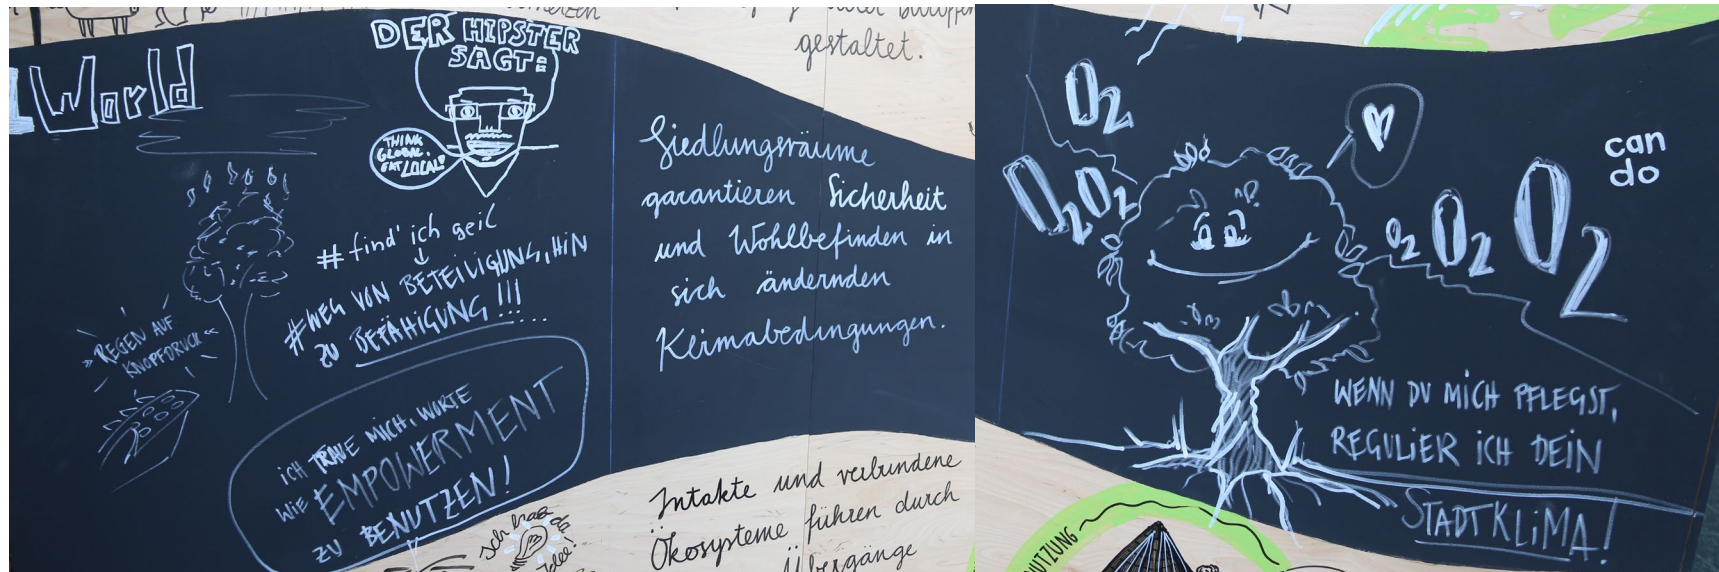 World
DER HIPSTER
SAGT:
THINK
GLOBAL.
EAT LOCAL!
# find' ich geil
#WEG VON BETEILIGUNG, HIN
ZU BEFÄHIGUNG!!!
»REGEN AUF
KNOPFDRUCK«
ICH TRAUE MICH, WORTE
WIE EMPOWERMENT
ZU BENUTZEN!
gestaltet.
Siedlungsräume
garantieren Sicherheit
und Wohlbefinden in
sich ändernden
Keimabedingungen.
ich hab
da
Idee!
Intakte und verbundene
Ökosysteme führen durch
Übergänge
O2
O2 O2
O2 O2 O2
can
do
WENN DU MICH PFLEGST,
REGULIER ICH DEIN
STADTKLIMA!
NUTZUNG